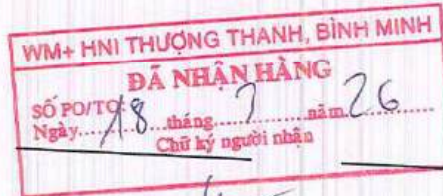 WM+ HNI THƯỢNG THANH, BÌNH MINH
ĐÃ NHẬN HÀNG
SỐ PO/TO:
Ngày 18 tháng 7 năm 26
Chữ ký người nhận